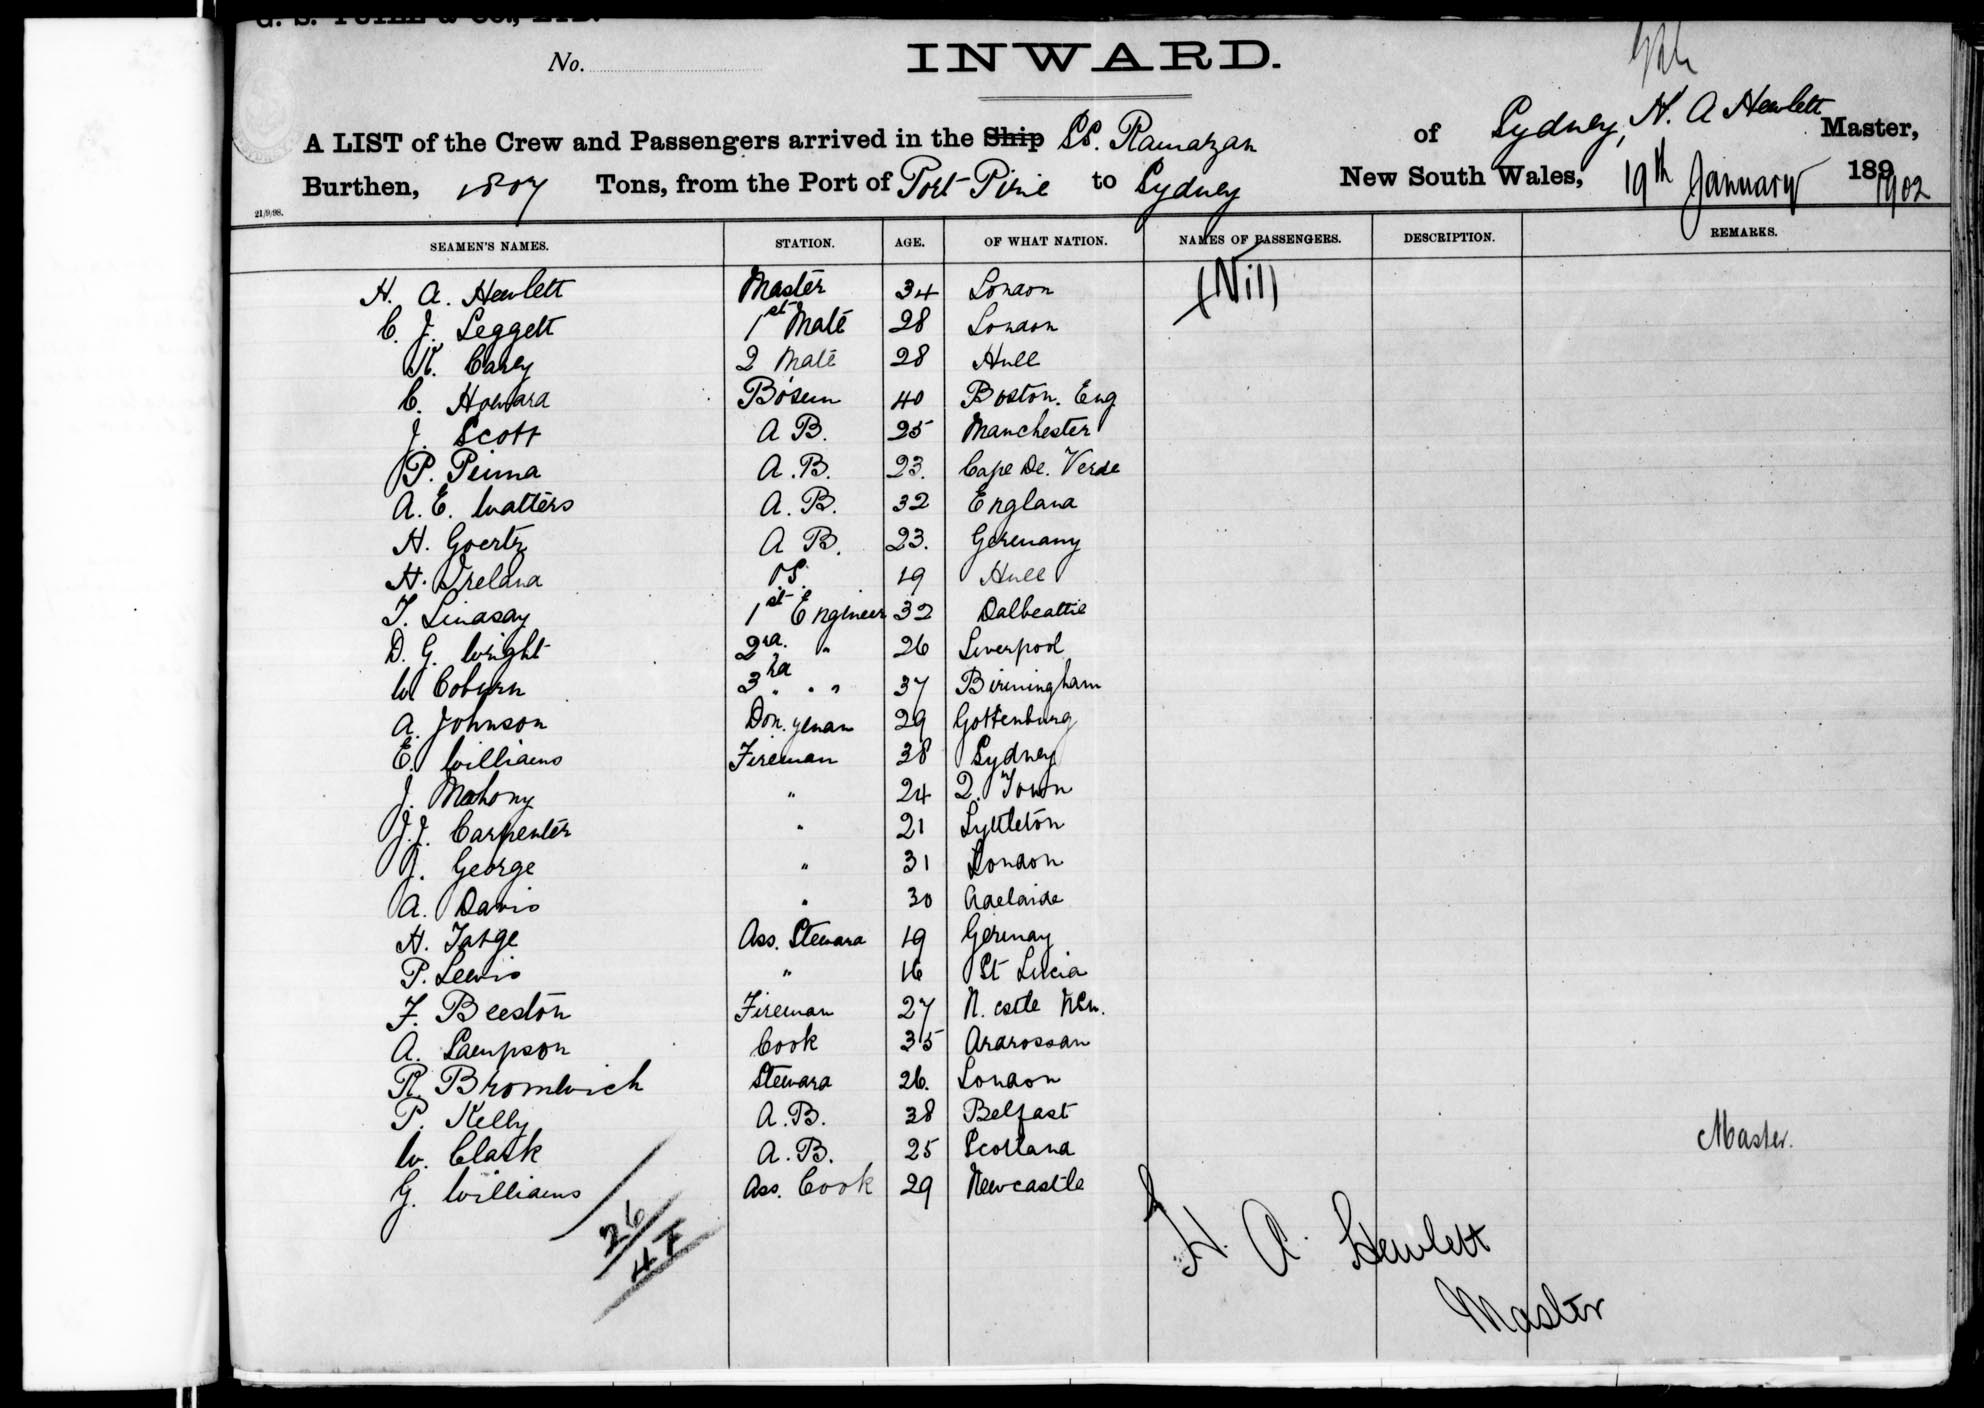 G. S. YUILL & CO., LTD.
No.
INWARD.
A LIST of the Crew and Passengers arrived in the Ship SS. Ramazan of Sydney, H. A Hewlett Master,
Burthen, 1807 Tons, from the Port of Port Pirie to Sydney New South Wales, 19th January 189 1902
21/9/98.
SEAMEN'S NAMES. STATION. AGE. OF WHAT NATION. NAMES OF PASSENGERS. DESCRIPTION. REMARKS.
H. A. Hewlett Master 34 London (Nil)
C. J. Leggett 1st Mate 28 London
R. Carey 2 Mate 28 Hull
C. Howard Bosun 40 Boston. Eng
J. Scott A B. 25 Manchester
P. Peima A. B. 23. Cape De. Verde
A. E. Watters A. B. 32 England
H. Goertz A B. 23. Germany
H. Ireland O.S. 19 Hull
T. Lindsay 1st Engineer 32 Dalbeattie
D. G. Wright 2nd. " 26 Liverpool
W Coburn 3rd " 37 Birmingham
A. Johnson Don. yman 29 Gottenburg
E. Williams Fireman 38 Sydney
J. Mahony " 24 Q. Town
J. J. Carpenter " 21 Lyttleton
J. George " 31 London
A. Davis " 30 Adelaide
H. Tatge Ass. Steward 19 Germay
P. Lewis " 16 St Lucia
F. Beeston Fireman 27 N. castle NSW.
A. Sampson Cook 35 Ardrossan
R. Bromwich Steward 26. London
P. Kelly A. B. 38 Belfast
W. Clark A. B. 25 Scotland
Master.
G. Williams Ass. Cook 29 Newcastle
26
4 F
H. A. Hewlett
Master